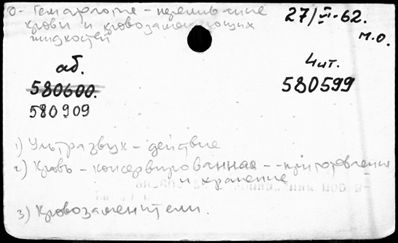 О- Гемартрия - переливание 27/II-62.
крови и кровозаменяющих м.о.
жидкостей
аб. Чит.
580600. 580599
580909
1) Ультразвук - действие
2) Кровь - консервированная - приготовление
и хранение
3) Кровозаменители.